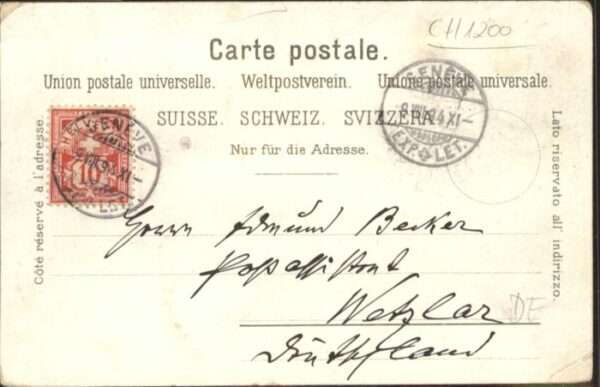 CH1200
Carte postale.
Union postale universelle. Weltpostverein. Unione postale universale.
SUISSE. SCHWEIZ. SVIZZERA.
Nur für die Adresse.
Côté réservé à l'adresse.
Lato riservato all' indirizzo.
GENÈVE
10
GENÈVE
EXP. LET.
Herrn Edmund Becker
Postassistent
Wetzlar
DE
Deutschland